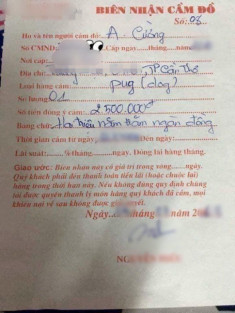 BIÊN NHẬN CẦM ĐỒ
Số: 08
Họ và tên người cầm đồ: A. Cường
Số CMND: Cấp ngày.....tháng.....năm
Nơi cấp:
Địa chỉ: TP Cần Thơ
Loại hàng cầm: pug (dog)
Số lượng: 01
Số tiền đồng ý cầm: 2.500.000đ
Bằng chữ: Hai triệu năm trăm ngàn đồng
Thời gian cầm từ ngày: Đến ngày:
Lãi suất: %tháng ngày. Đóng lãi hàng tháng.
Giao ước: Biên nhận này có giá trị trong vòng......ngày.
Quý khách phải đến thanh toán tiền lãi (hoặc chuộc lại)
hàng trong thời hạn này. Nếu không đúng quy định chúng
tôi được quyền thanh lý món hàng quý khách đã cầm, mọi
khiếu nại về sau không được giải quyết.
Ngày tháng năm 20